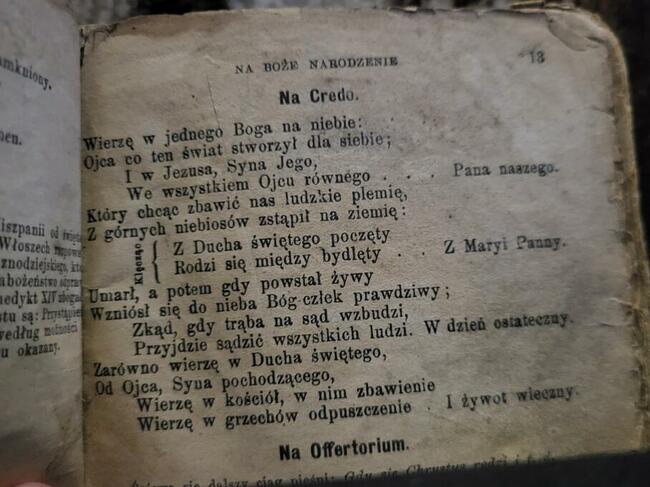 amkniony.
nen.
iszpanii od święta
Włoszech
znodziejskiego, kt
abożeństwo
nedykt XIV
stu są: Przystąpien
według możności
u okazany.
NA BOŻE NARODZENIE 13
Na Credo.
Wierzę w jednego Boga na niebie:
Ojca co ten świat stworzył dla siebie;
I w Jezusa, Syna Jego,
We wszystkiem Ojcu równego . . . Pana naszego.
Który chcąc zbawić nas ludzkie plemię,
Z górnych niebiosów zstąpił na ziemię:
Klęcząc
Z Ducha świętego poczęty
Rodzi się między bydlęty . . Z Maryi Panny.
Umarł, a potem gdy powstał żywy
Wzniósł się do nieba Bóg-człek prawdziwy;
Zkąd, gdy trąba na sąd wzbudzi,
Przyjdzie sądzić wszystkich ludzi. W dzień ostateczny.
Zarówno wierzę w Ducha świętego,
Od Ojca, Syna pochodzącego,
Wierzę w kościół, w nim zbawienie
Wierzę w grzechów odpuszczenie . I żywot wieczny.
Na Offertorium.
się dalszy ciąg pieśni: Gdy się Chrystus rodzi i t. d.